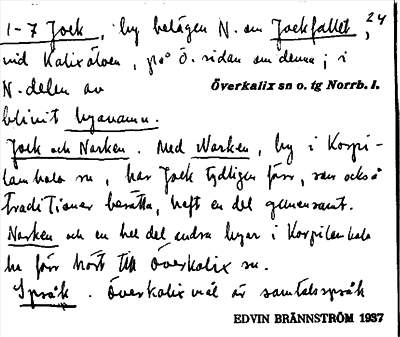 1-7 Jock, by belägen N. om Jockfallet, 24
vid Kalixälven, på Ö. sidan om denna; i
N. delen av Överkalix sn o. tg Norrb. l.
blivit bynamn.
Jock och Narken. Med Narken, by i Korpi-
lombolo sn, har Jock tydligen förr, som också
traditioner berätta, haft en del gemensamt.
Narken och en hel del andra byar i Korpilombolo
ha förr hört till Överkalix sn.
Språk. Överkalixmål är samtalsspråk
EDVIN BRÄNNSTRÖM 1937